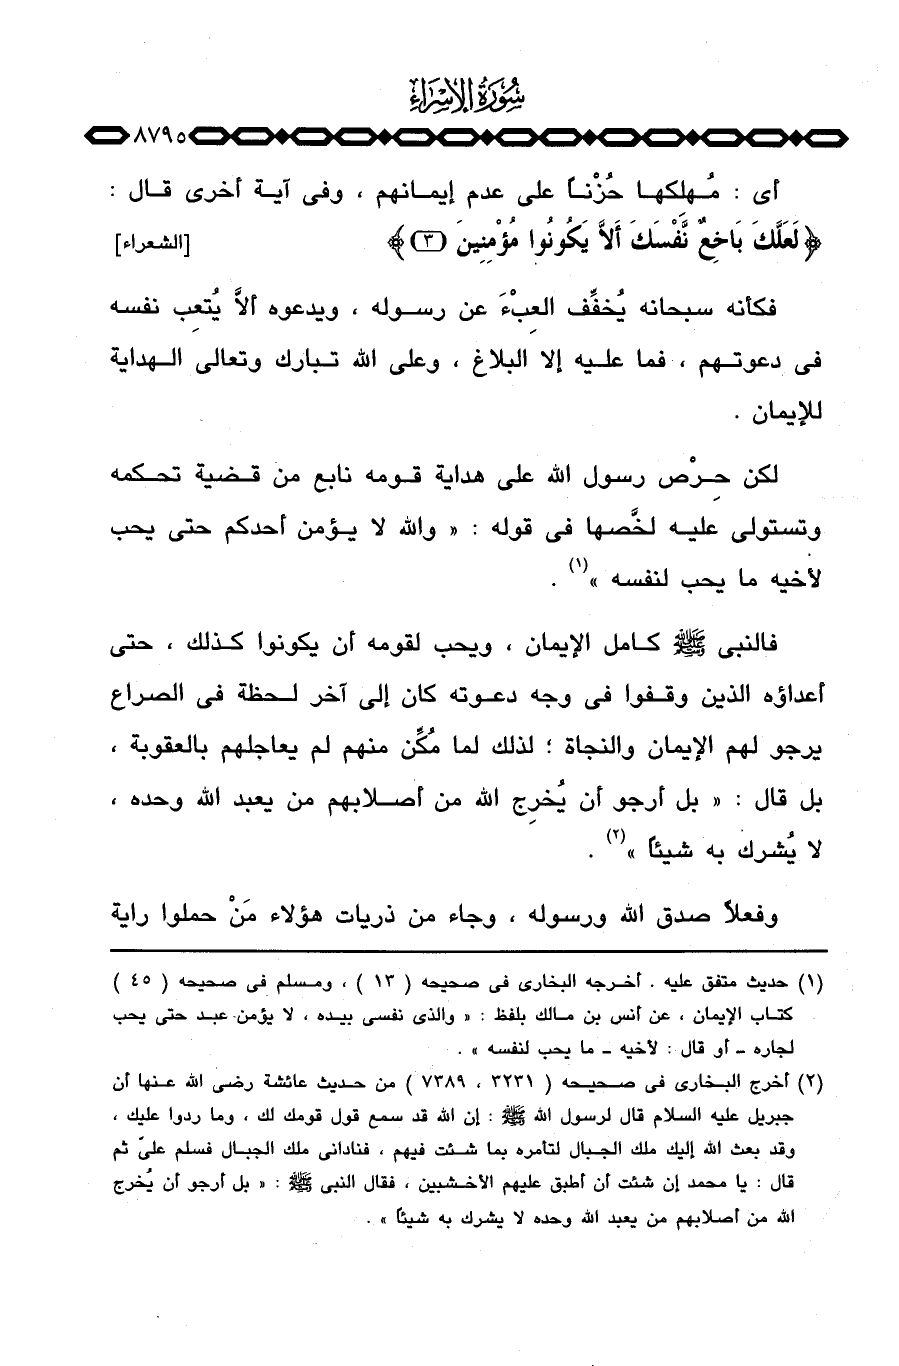 سُورَةُ الإِسْرَاءِ
٨٧٩٥
أى : مُهلِكها حُزْناً على عدم إيمانهم ، وفى آية أخرى قال :
﴿ لَعَلَّكَ بَاخِعٌ نَّفْسَكَ أَلاَّ يَكُونُوا مُؤْمِنِينَ (٣) ﴾ [الشعراء]
فكأنه سبحانه يُخفِّف العِبْءَ عن رسوله ، ويدعوه ألاَّ يُتعِب نفسه
فى دعوتهم ، فما عليه إلا البلاغ ، وعلى الله تبارك وتعالى الهداية
للإيمان .
لكن حِرْص رسول الله على هداية قومه نابع من قضية تحكمه
وتستولى عليه لخَّصها فى قوله : « والله لا يؤمن أحدكم حتى يحب
لأخيه ما يحب لنفسه »(١) .
فالنبى ﷺ كامل الإيمان ، ويحب لقومه أن يكونوا كذلك ، حتى
أعداؤه الذين وقفوا فى وجه دعوته كان إلى آخر لحظة فى الصراع
يرجو لهم الإيمان والنجاة ؛ لذلك لما مُكِّن منهم لم يعاجلهم بالعقوبة ،
بل قال : « بل أرجو أن يُخرِج الله من أصلابهم من يعبد الله وحده ،
لا يُشرك به شيئاً »(٢) .
وفعلاً صدق الله ورسوله ، وجاء من ذريات هؤلاء مَنْ حملوا راية
(١) حديث متفق عليه . أخرجه البخارى فى صحيحه ( ١٣ ) ، ومسلم فى صحيحه ( ٤٥ )
كتاب الإيمان ، عن أنس بن مالك بلفظ : « والذى نفسى بيده ، لا يؤمن عبد حتى يحب
لجاره - أو قال : لأخيه - ما يحب لنفسه » .
(٢) أخرج البخارى فى صحيحه ( ٣٢٣١ ، ٧٣٨٩ ) من حديث عائشة رضى الله عنها أن
جبريل عليه السلام قال لرسول الله ﷺ : إن الله قد سمع قول قومك لك ، وما ردوا عليك ،
وقد بعث الله إليك ملك الجبال لتأمره بما شئت فيهم ، فنادانى ملك الجبال فسلم علىّ ثم
قال : يا محمد إن شئت أن أطبق عليهم الأخشبين ، فقال النبى ﷺ : « بل أرجو أن يُخرج
الله من أصلابهم من يعبد الله وحده لا يشرك به شيئاً » .